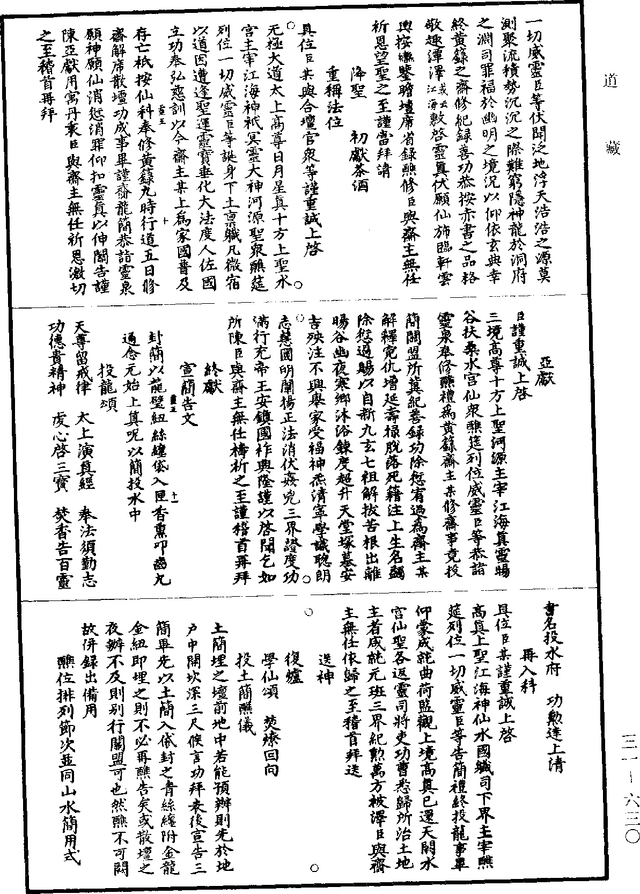 道藏
一切威靈臣等伏聞泛地浮天浩浩之源莫
測聚流積勢沉沉之際難窮隱神龍於洞府
之淵司罪福於幽明之境況以仰依玄典幸
終黃籙之齋修紀錄善功恭按赤書之品格
敬趣澤澤或云江海敷啓靈真伏願仙旆臨軒雲
輿按轡鑒瞻壇席省錄熊修臣與齋主無任
祈恩望聖之至謹當拜請
降聖 初獻茶酒
重稱法位
具位臣某與合壇官衆等謹重誠上啓
無極大道太上高尊日月星真十方上聖水
宮主宰江海神祇冥靈大神河源聖衆醮筵
列位一切威靈臣等誕身下土禀職凡微宿
以道因遭逢聖運靈寶垂化大法度人佐國
立功恭弘慈訓以今齋主某上爲家國普及
存亡祇按仙科奉修黃籙九時行道五日修
齋解席散壇功成事畢謹齎龍簡恭詣靈泉
願神願仙消愆消罪仰扣靈真以伸關告謹
陳亞獻用寫丹衷臣與齋主無任祈恩激切
之至稽首再拜
亞獻
臣謹重誠上啓
三境高尊十方上聖河源主宰江海真靈暘
谷扶桑水宮仙衆醮筵列位威靈臣等恭詣
靈泉奉修醮禮爲黃籙齋主某修齋事竟投
簡關盟所冀紀善錄功除愆宥過爲齋主某
解釋冤仇增延壽祿脫落死籍注上生名蠲
除愆過賜以自新九玄七祖解拔苦根出離
暘谷幽夜寒鄉沐浴鍊度超昇天堂塚墓安
吉殃注不興舉家受福神炁清寧學識聰朗
志慧圓明闡揚正法消伏姦兇三界證度功
滿行充帝王安鎮國祚興隆謹以啓聞乞如
所陳臣與齋主無任禱祈之至謹稽首再拜
終獻
宣簡告文
封簡以龍璧紐絲纏儀入匣香熏叩齒九
過念元始上真呪以簡投水中
投龍頌
天尊留戒律 太上演真經 奉法須勤志
功德貴精神 虔心啓三寶 焚香告百靈
書名投水府 功勳達上清
再入科
具位臣某謹重誠上啓
高真上聖江海神仙水國職司下界主宰醮
筵列位一切威靈臣等告簡禮終投龍事畢
仰蒙咸詑曲荷監觀上境高真已還天闕水
宮仙聖各返靈司將吏功曹悉歸所治土地
主者咸詑元班三界紀勳萬方被澤臣與齋
主無任依歸之至稽首拜送
送神
復爐
學仙頌 焚燎回向
投土簡醮儀
土簡埋之壇前地中若能預辦則先於地
户中開坎深三尺候言功拜表後宣告三
簡畢先以土簡入依封之青絲纏附金龍
金紐即埋之則不必再醮告矣或散壇之
夜辦不及則別行關盟可也然醮不可闕
故併錄出備用
醮位排列節次並同山水簡用式
三一—六三〇